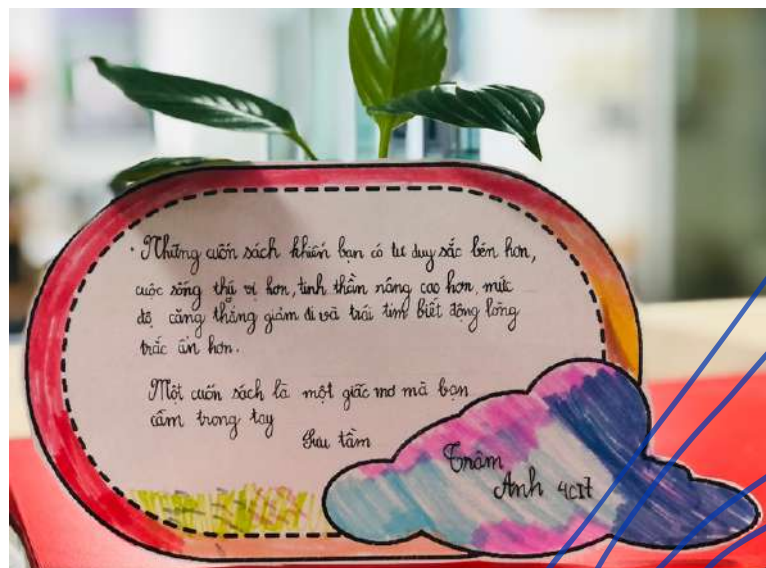 · Những cuốn sách khiến bạn có tư duy sắc bén hơn,
cuộc sống thú vị hơn, tinh thần nâng cao hơn, mức
độ căng thẳng giảm đi và trái tim biết động lòng
trắc ẩn hơn.
Một cuốn sách là một giấc mơ mà bạn
cầm trong tay
Sưu tầm
Trâm
Anh 4CI7